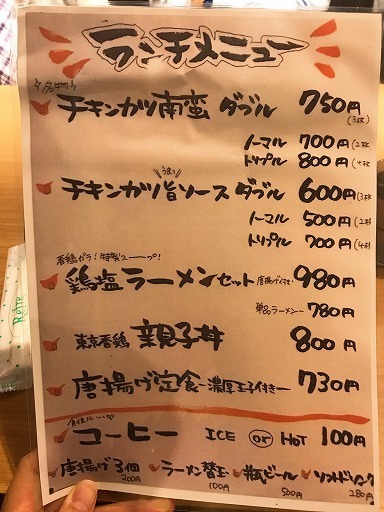 ランチメニュー
名物
チキンカツ南蛮 ダブル 750円 (3枚)
ノーマル 700円 (2枚
トリプル 800円 (4枚
うまっ
チキンカツ旨ソース ダブル 600円 (3枚
ノーマル 500円 (2枚
トリプル 700円 (4枚
鶏塩ラーメンセット 980円
780円
東京香鶏 親子丼 800円
唐揚げ定食 ー濃厚玉子付きー 730円
コーヒー ICE or HOT 100円
唐揚げ3個 ラーメン替玉 瓶ビール ソフトドリンク
200円 100円 500円 280円